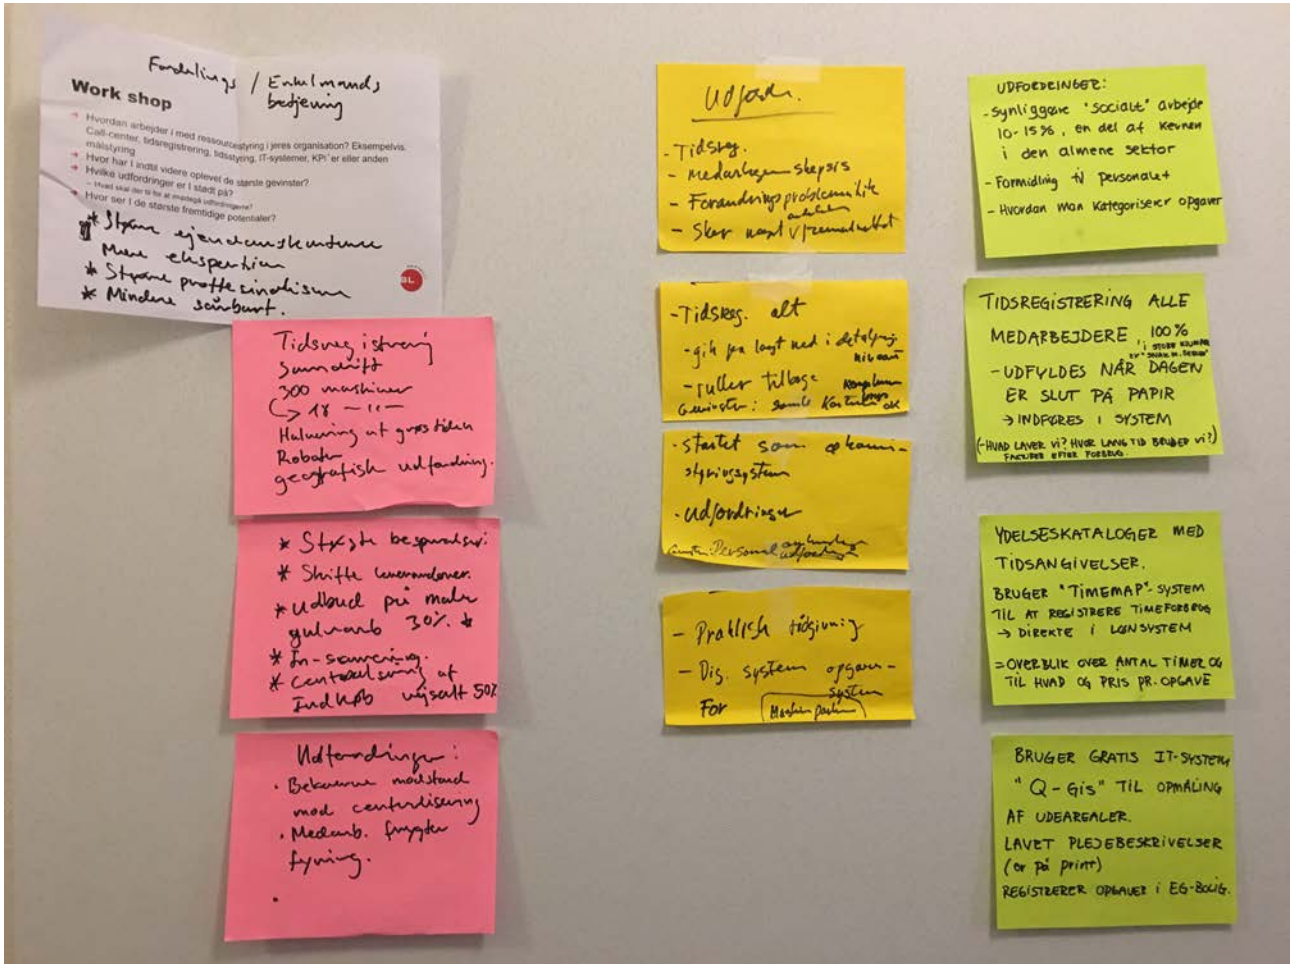 Fordelings / Enkelmands
betjening
Work shop
Hvordan arbejder i med ressourcestyring i jeres organisation? Eksempelvis.
Call-center, tidsregistrering, tidsstyring, IT-systemer, KPI´er eller anden
målstyring
Hvor har I indtil videre oplevet de største gevinster?
Hvilke udfordringer er I stødt på?
– Hvad skal der til for at imødegå udfordringerne?
Hvor ser I de største fremtidige potentialer?
* Større ejendomskontorer
Mere ekspertise
* Større proffesionalisme
* Mindre sårbart.
BL
Tidsregistrering
Samdrift
300 maskiner
↳ 18 — 11 —
Halvering af græstiden
Robotter
geografisk udfordring.
* Største besparelser:
* Skifte leverandører.
* Udbud på maler
gulvarb 30% *
* In-sourcing.
* Centralisering af
Indkøb 50%
Udfordringer:
• Beboerne modstand
mod centralisering
• Medarb. frygter
fyring.
•
Udford.
- Tidsreg.
- Medarbejder skepsis
- Forandringsproblematik
- Sker
- Tidsreg. alt
- gik for langt ned i detaljerings
niveau
- ruller tilbage
Gevinster: samle
- startet som økonomi-
styringssystem
- Udfordringer
Personal
- Praktisk rådgivning
- Dig. system opgave-
system
For Maskinparken
UDFORDRINGER:
- Synliggøre "socialt" arbejde
10-15%, en del af kernen
i den almene sektor
- Formidling til personalet
- Hvordan man kategoriserer opgaver
TIDSREGISTRERING ALLE
MEDARBEJDERE, 100%
- UDFYLDES NÅR DAGEN
ER SLUT PÅ PAPIR
→ INDFØRES I SYSTEM
(-HVAD LAVER VI? HVOR LANG TID BRUGER VI?)
FAKTURER EFTER FORBRUG.
YDELSESKATALOGER MED
TIDSANGIVELSER.
BRUGER "TIMEMAP"-SYSTEM
TIL AT REGISTRERE TIMEFORBRUG
→ DIREKTE I LØNSYSTEM
= OVERBLIK OVER ANTAL TIMER OG
TIL HVAD OG PRIS PR. OPGAVE
BRUGER GRATIS IT-SYSTEM
"Q-Gis" TIL OPMÅLING
AF UDEAREALER.
LAVET PLEJEBESKRIVELSER
(er på print)
REGISTRERER OPGAVER i EG-BOLIG.